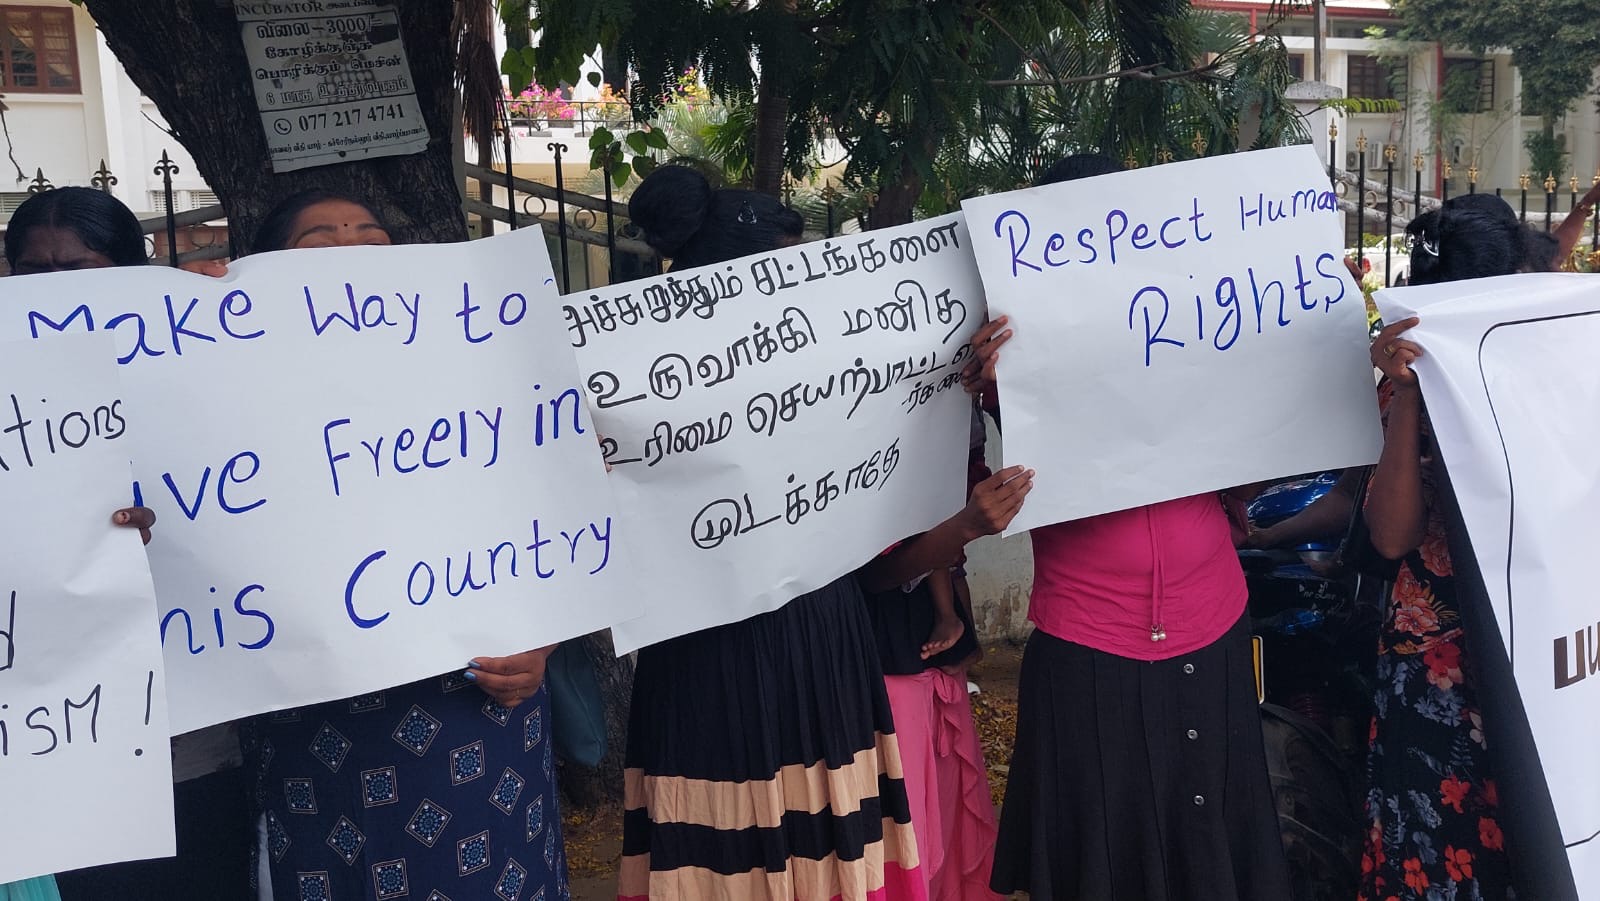 INCUBATOR
விலை - 3000/=
கோழிக்குஞ்சு
பொரிக்கும் மெசின்
6 மாத உத்தரவாதம்
077 217 4741
Make Way to
ive Freely in
his Country
ations
d
ism!
அச்சுறுத்தும் சட்டங்களை
உருவாக்கி மனித
உரிமை செயற்பாட்டாளர்களை
முடக்காதே
Respect Human
Rights